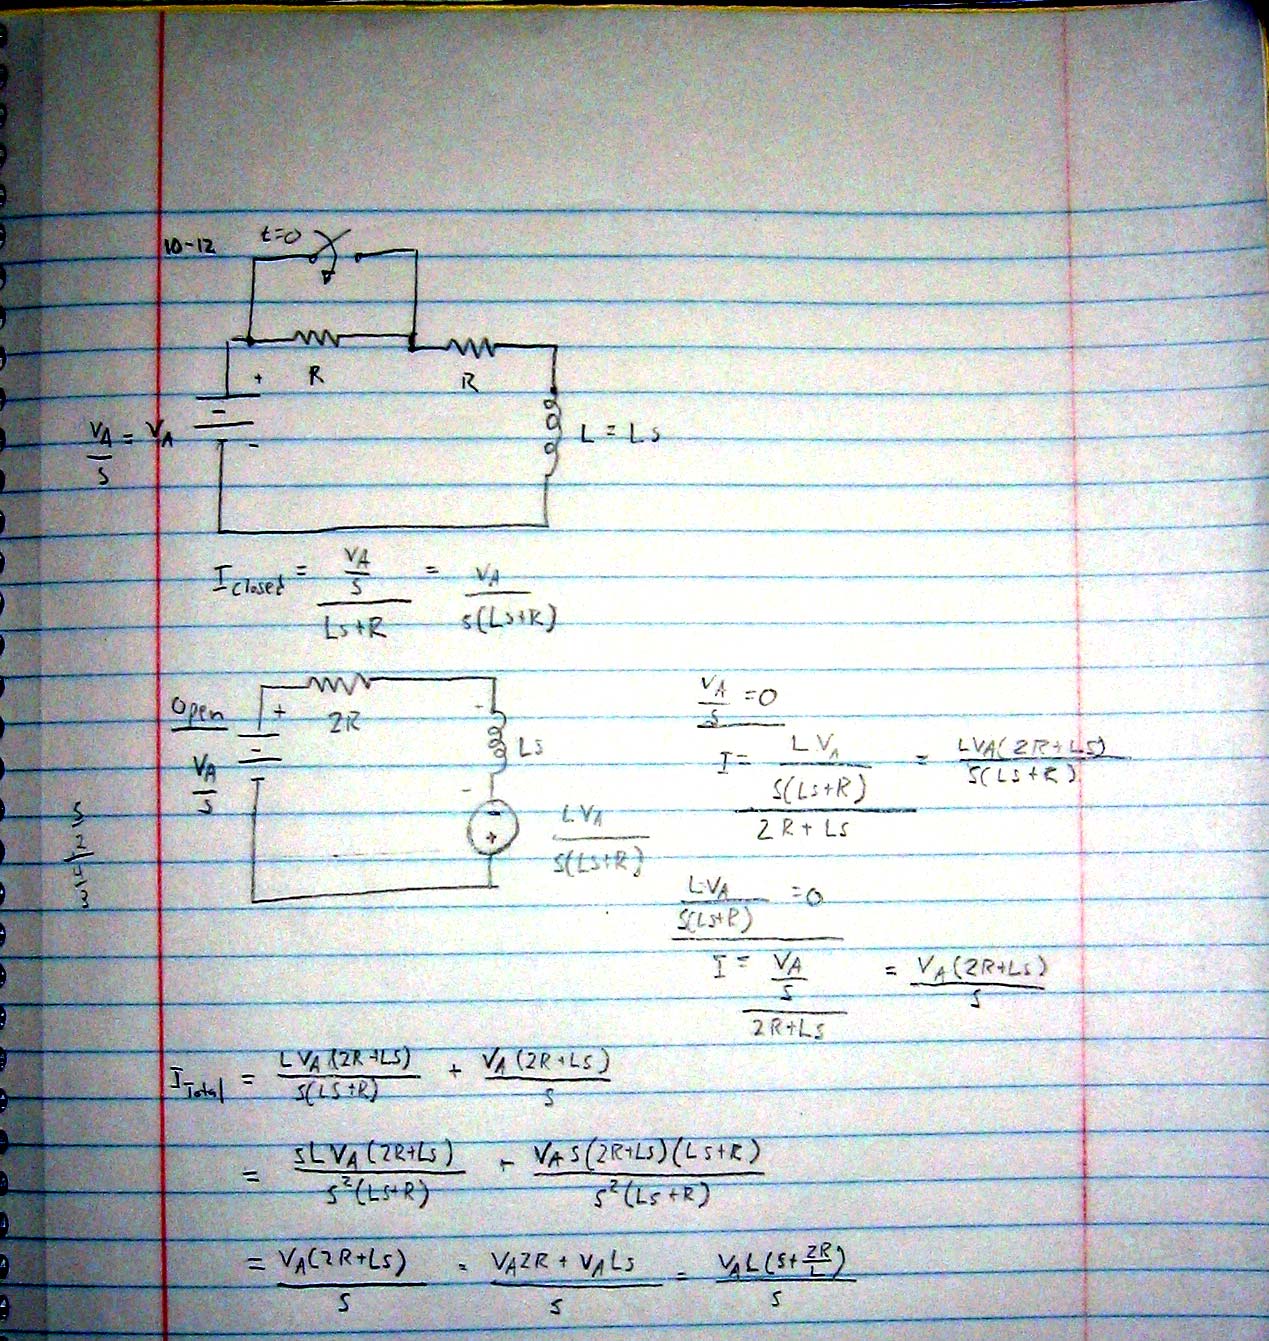 10-12 t=0
+ R R
V_A/S = V_A - - L = Ls
I_closed = (V_A/S)/(Ls+R) = V_A/(s(Ls+R))
Open + 2R - Ls
V_A/S - - + LV_A/(S(Ls+R))
V_A/S = 0
I = (LV_A/(S(Ls+R)))/(2R+Ls) = LV_A(2R+Ls)/(S(Ls+R))
LV_A/(S(Ls+R)) = 0
I = (V_A/S)/(2R+Ls) = V_A(2R+Ls)/S
I_Total = LV_A(2R+Ls)/(S(Ls+R)) + V_A(2R+Ls)/S
= sLV_A(2R+Ls)/(s²(Ls+R)) + V_A S(2R+Ls)(Ls+R)/(s²(Ls+R))
= V_A(2R+Ls)/S = V_A2R + V_ALs/S = V_AL(s+2R/L)/S